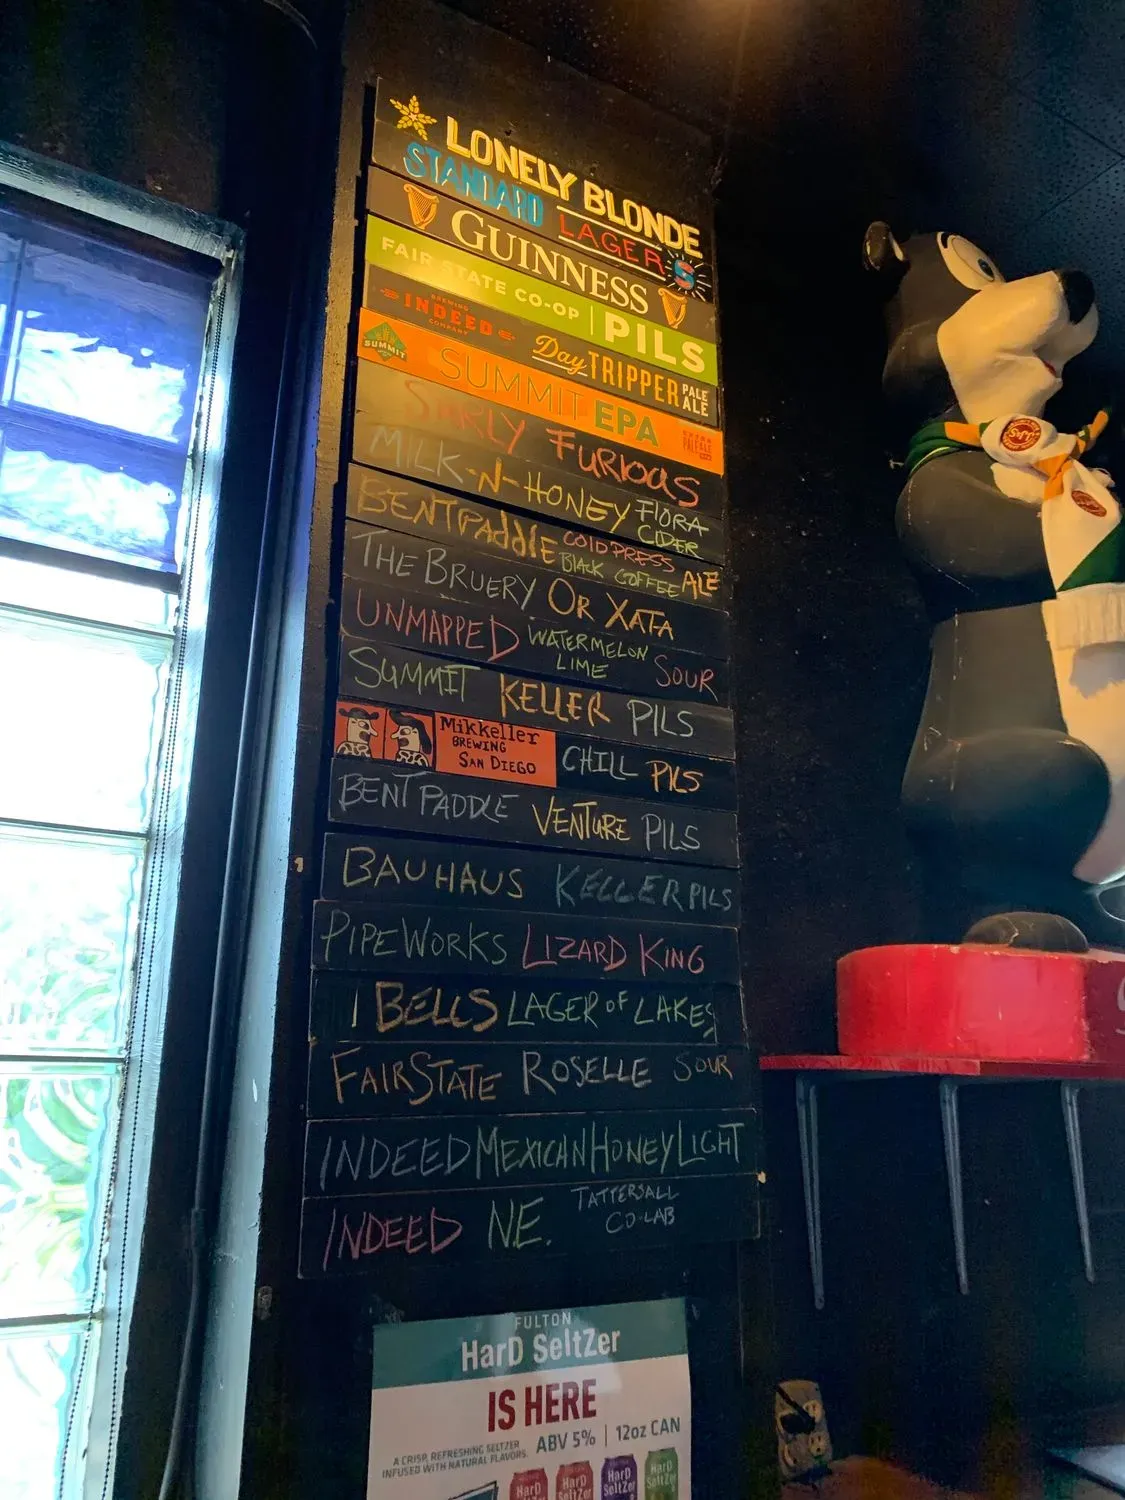 LONELY BLONDE
STANDARD LAGER S
GUINNESS
FAIR STATE CO-OP | PILS
BREWING
INDEED
COMPANY
Day TRIPPER PALE ALE
SUMMIT
SUMMIT EPA
EXTRA
PALE ALE
SURLY FURIOUS
MILK-N-HONEY FLORA
CIDER
BENTPADDLE COLD PRESS
BLACK COFFEE ALE
THE BRUERY OR XATA
UNMAPPED WATERMELON
LIME SOUR
SUMMIT KELLER PILS
Mikkeller
BREWING
SAN DIEGO
CHILL PILS
BENT PADDLE VENTURE PILS
BAUHAUS KELLERPILS
PIPEWORKS LIZARD KING
BELLS LAGER OF LAKES
FAIRSTATE ROSELLE SOUR
INDEED MEXICAN HONEY LIGHT
INDEED N.E. TATTERSALL
CO-LAB
FULTON
HarD SeltZer
IS HERE
A CRISP, REFRESHING SELTZER
INFUSED WITH NATURAL FLAVORS.
ABV 5% | 12oz CAN
HarD
SeltZer
HarD
SeltZer
HarD
SeltZer
HarD
SeltZer